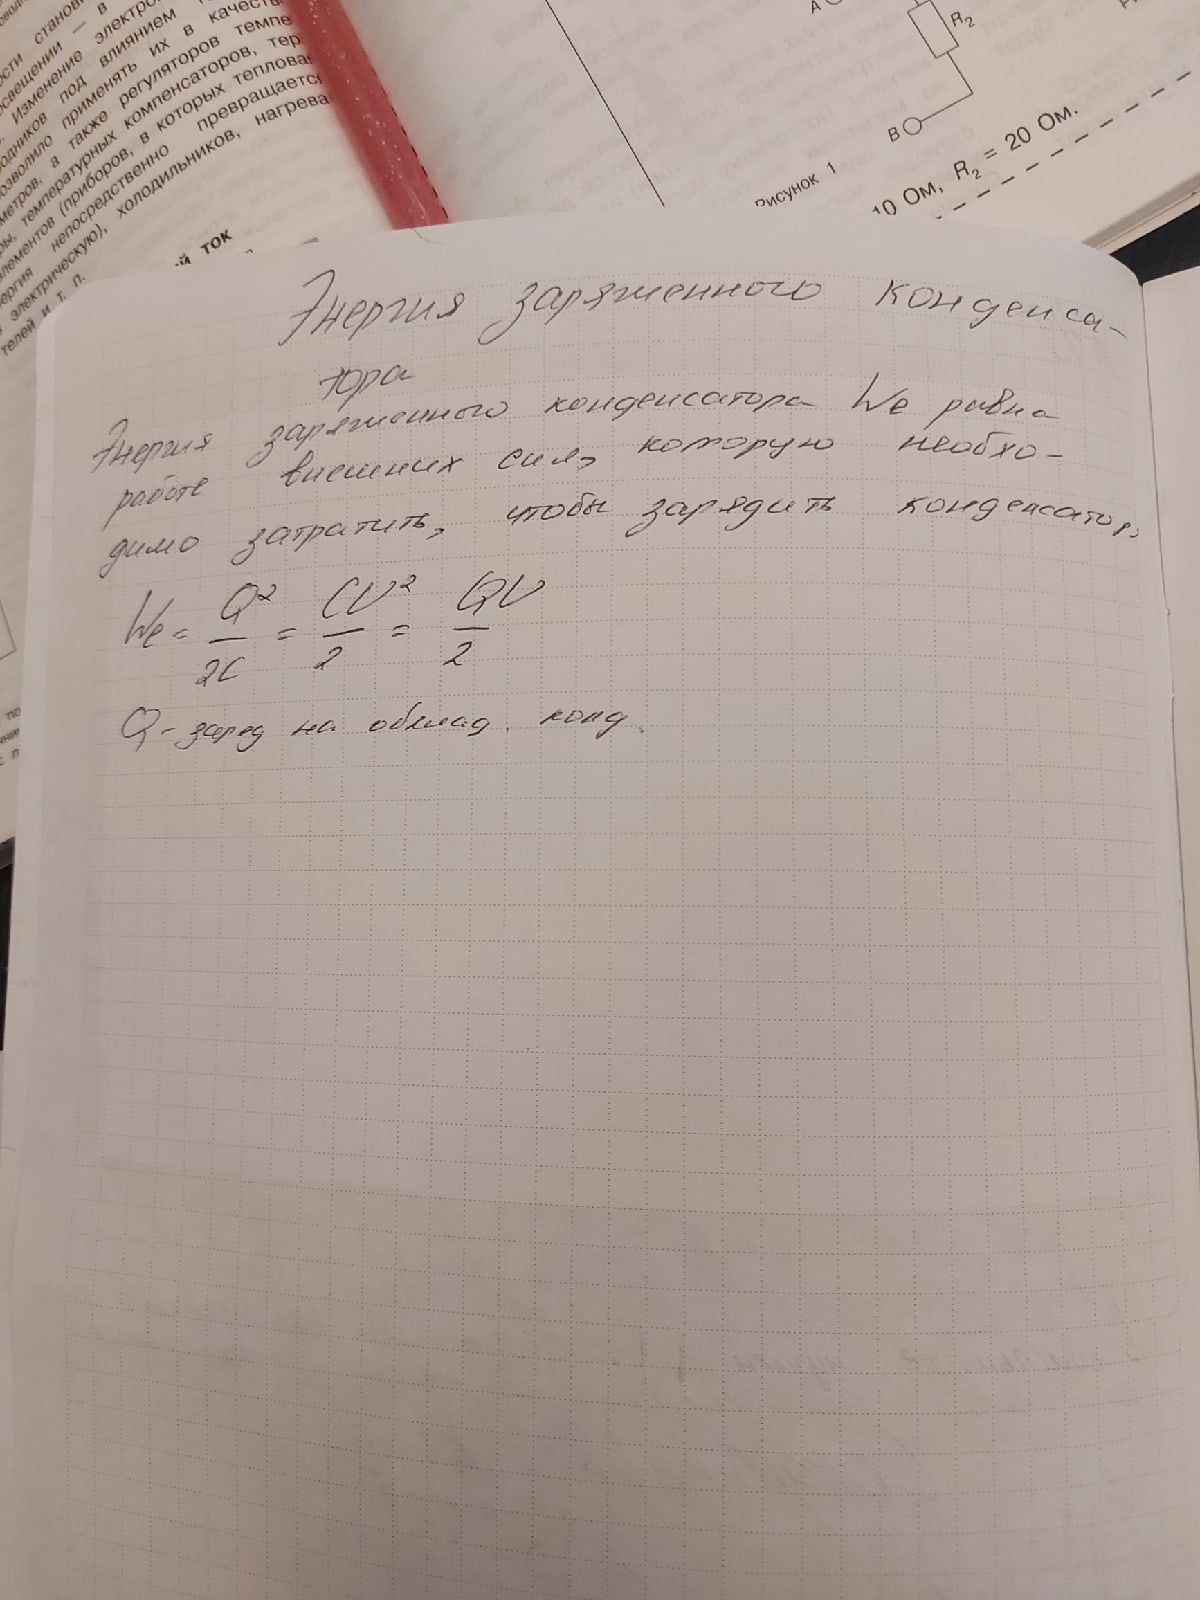 ости станов
освещении — в
Изменение электро
одников под влиянием
озволило применять их в качеств
метров, а также регуляторов темпе
ры, температурных компенсаторов, тер
элементов (приборов, в которых теплова
нергия непосредственно превращается
в электрическую), холодильников, нагрева
телей и т. п.
й ток
A
R₂
B
Рисунок 1
10 Ом, R₂ = 20 Ом.
Энергия заряженного конденса-
тора
Энергия заряженного конденсатора We равна
работе внешних сил, которую необхо-
димо затратить, чтобы зарядить конденсатор,
We = Q²/2C = CU²/2 = QU/2
Q - заред на облад. конд.